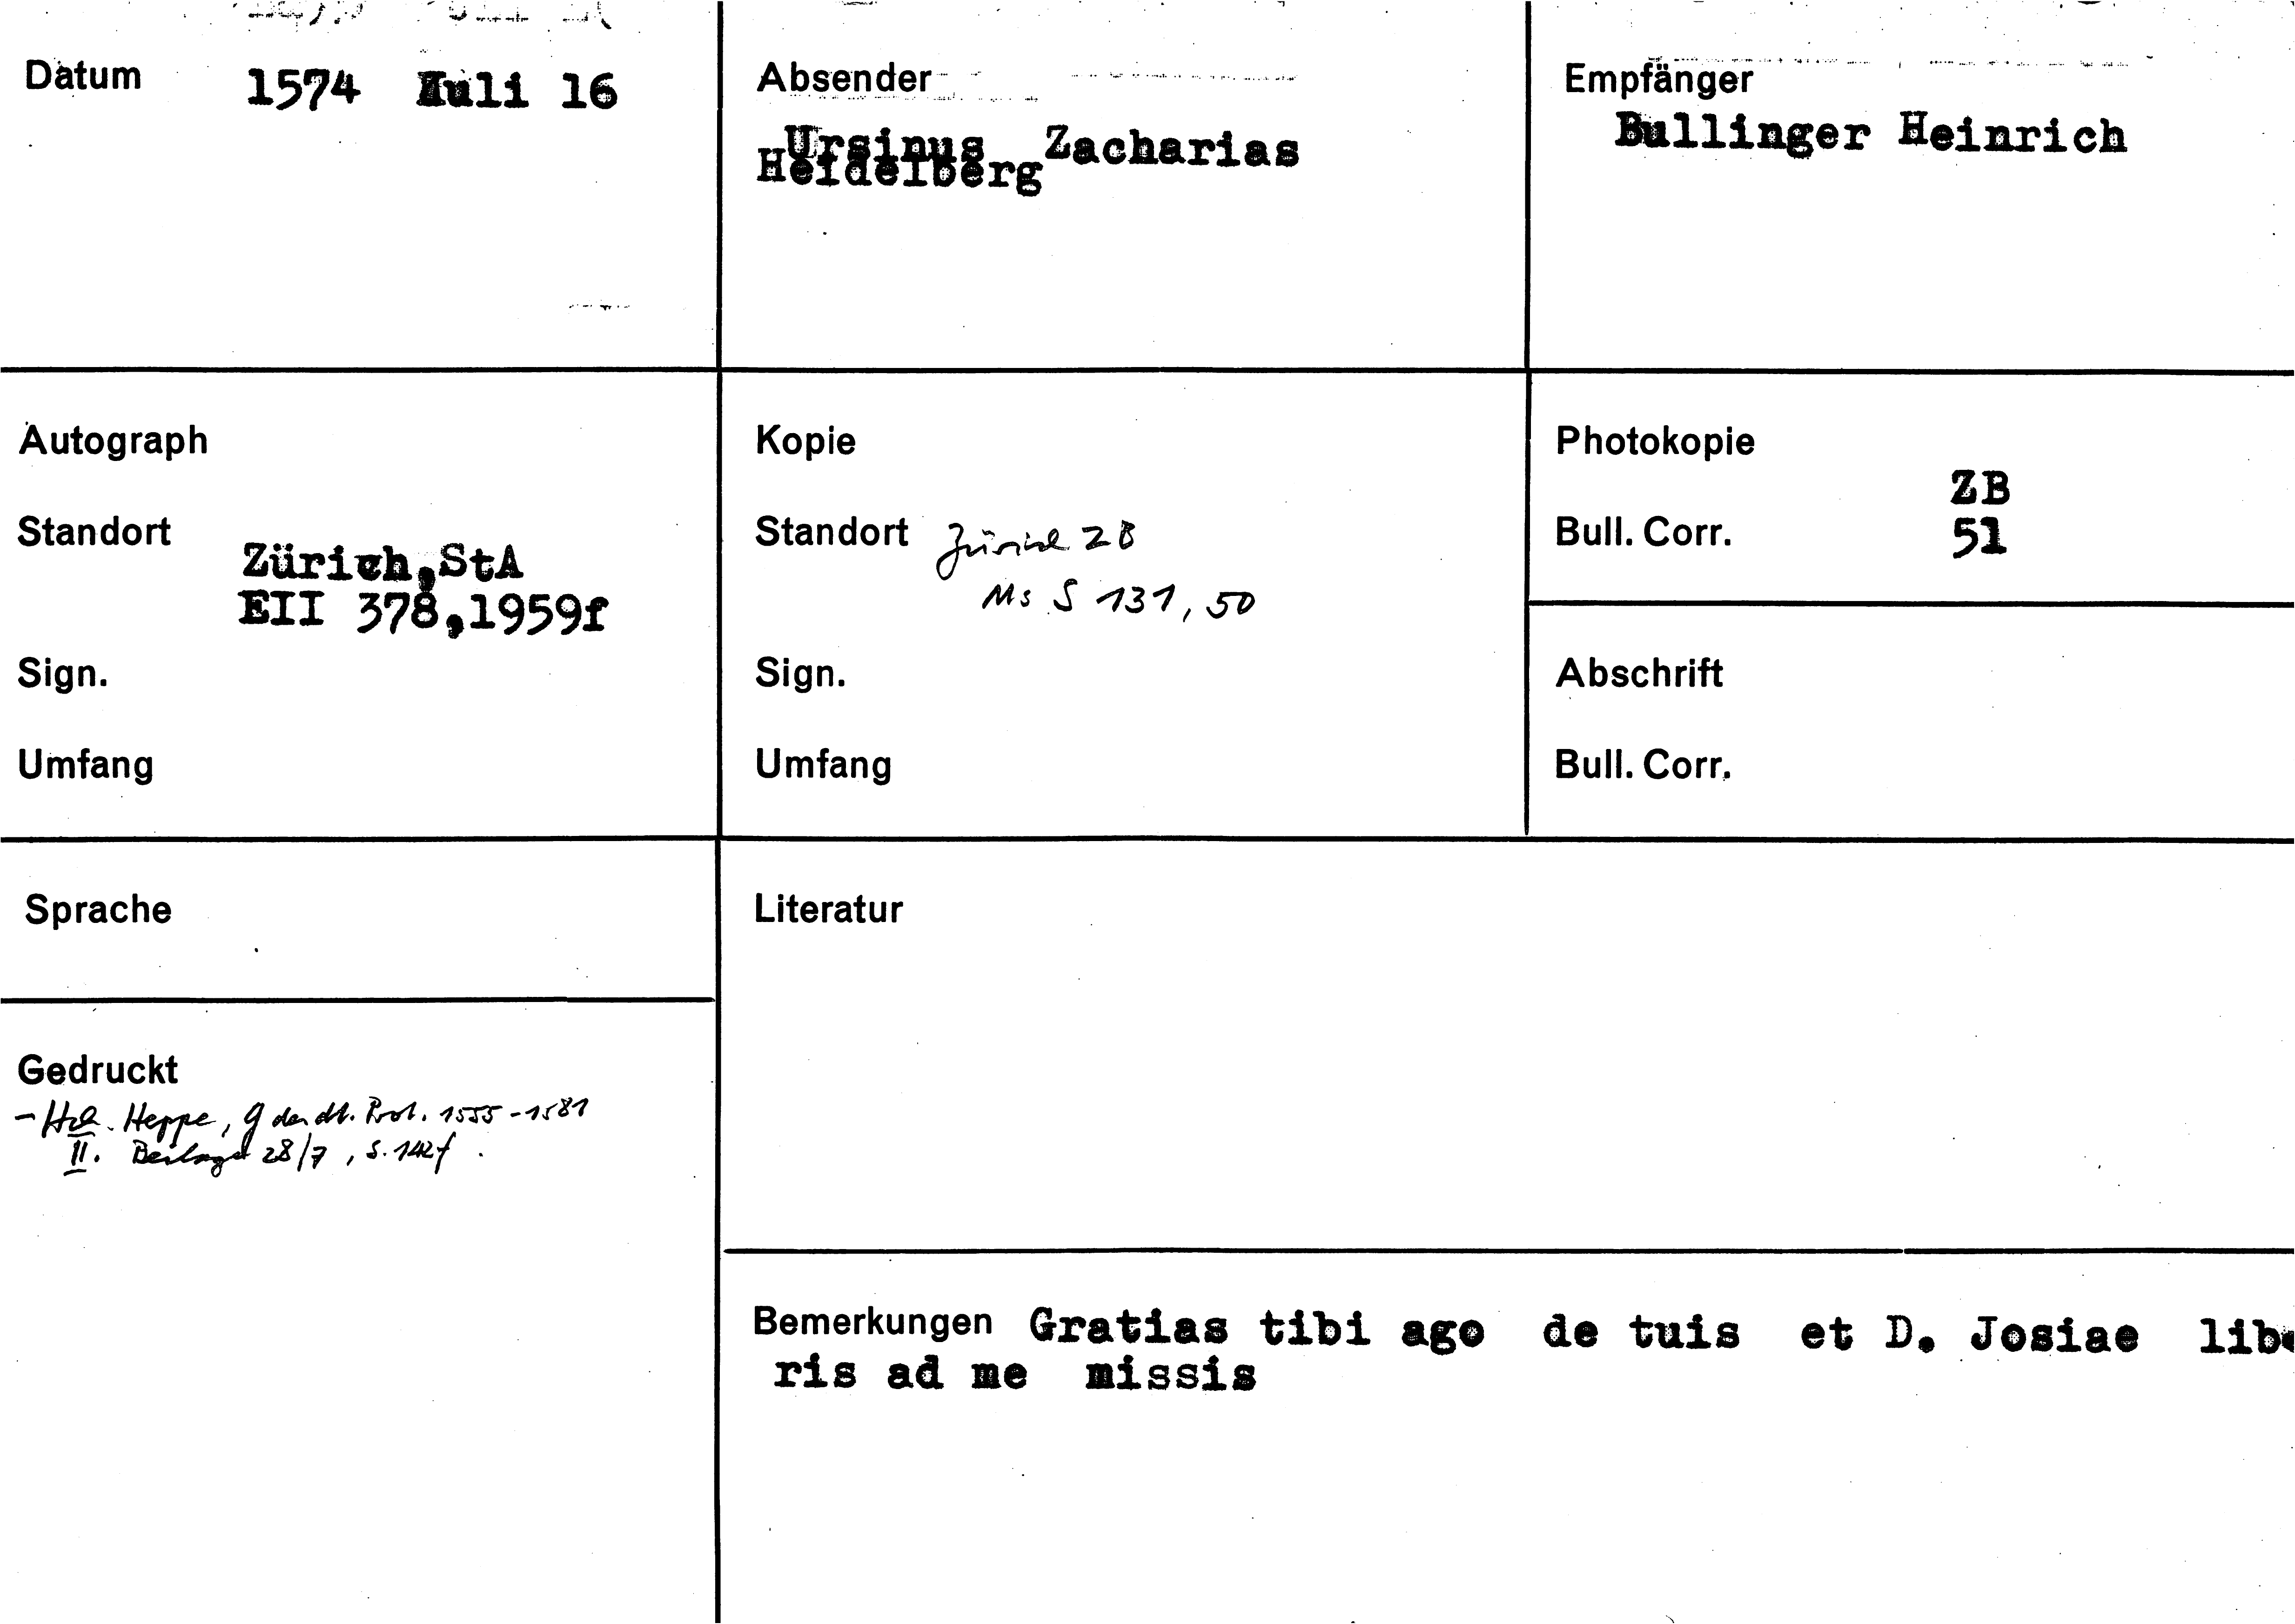 Datum 1574 Juli 16
Absender
Ursinus Zacharias
Heidelberg
Empfänger
Bullinger Heinrich
Autograph
Standort
Zürich,StA
EII 378,1959f
Sign.
Umfang
Kopie
Standort Zürich ZB
Ms S 131, 50
Sign.
Umfang
Photokopie
ZB
Bull. Corr. 51
Abschrift
Bull. Corr.
Sprache
Gedruckt
- Hch. Heppe, G des dt. Prot. 1555-1581
II. Beilage 28/7, S. 142f.
Literatur
Bemerkungen Gratias tibi ago de tuis et D. Josiae lib
ris ad me missis